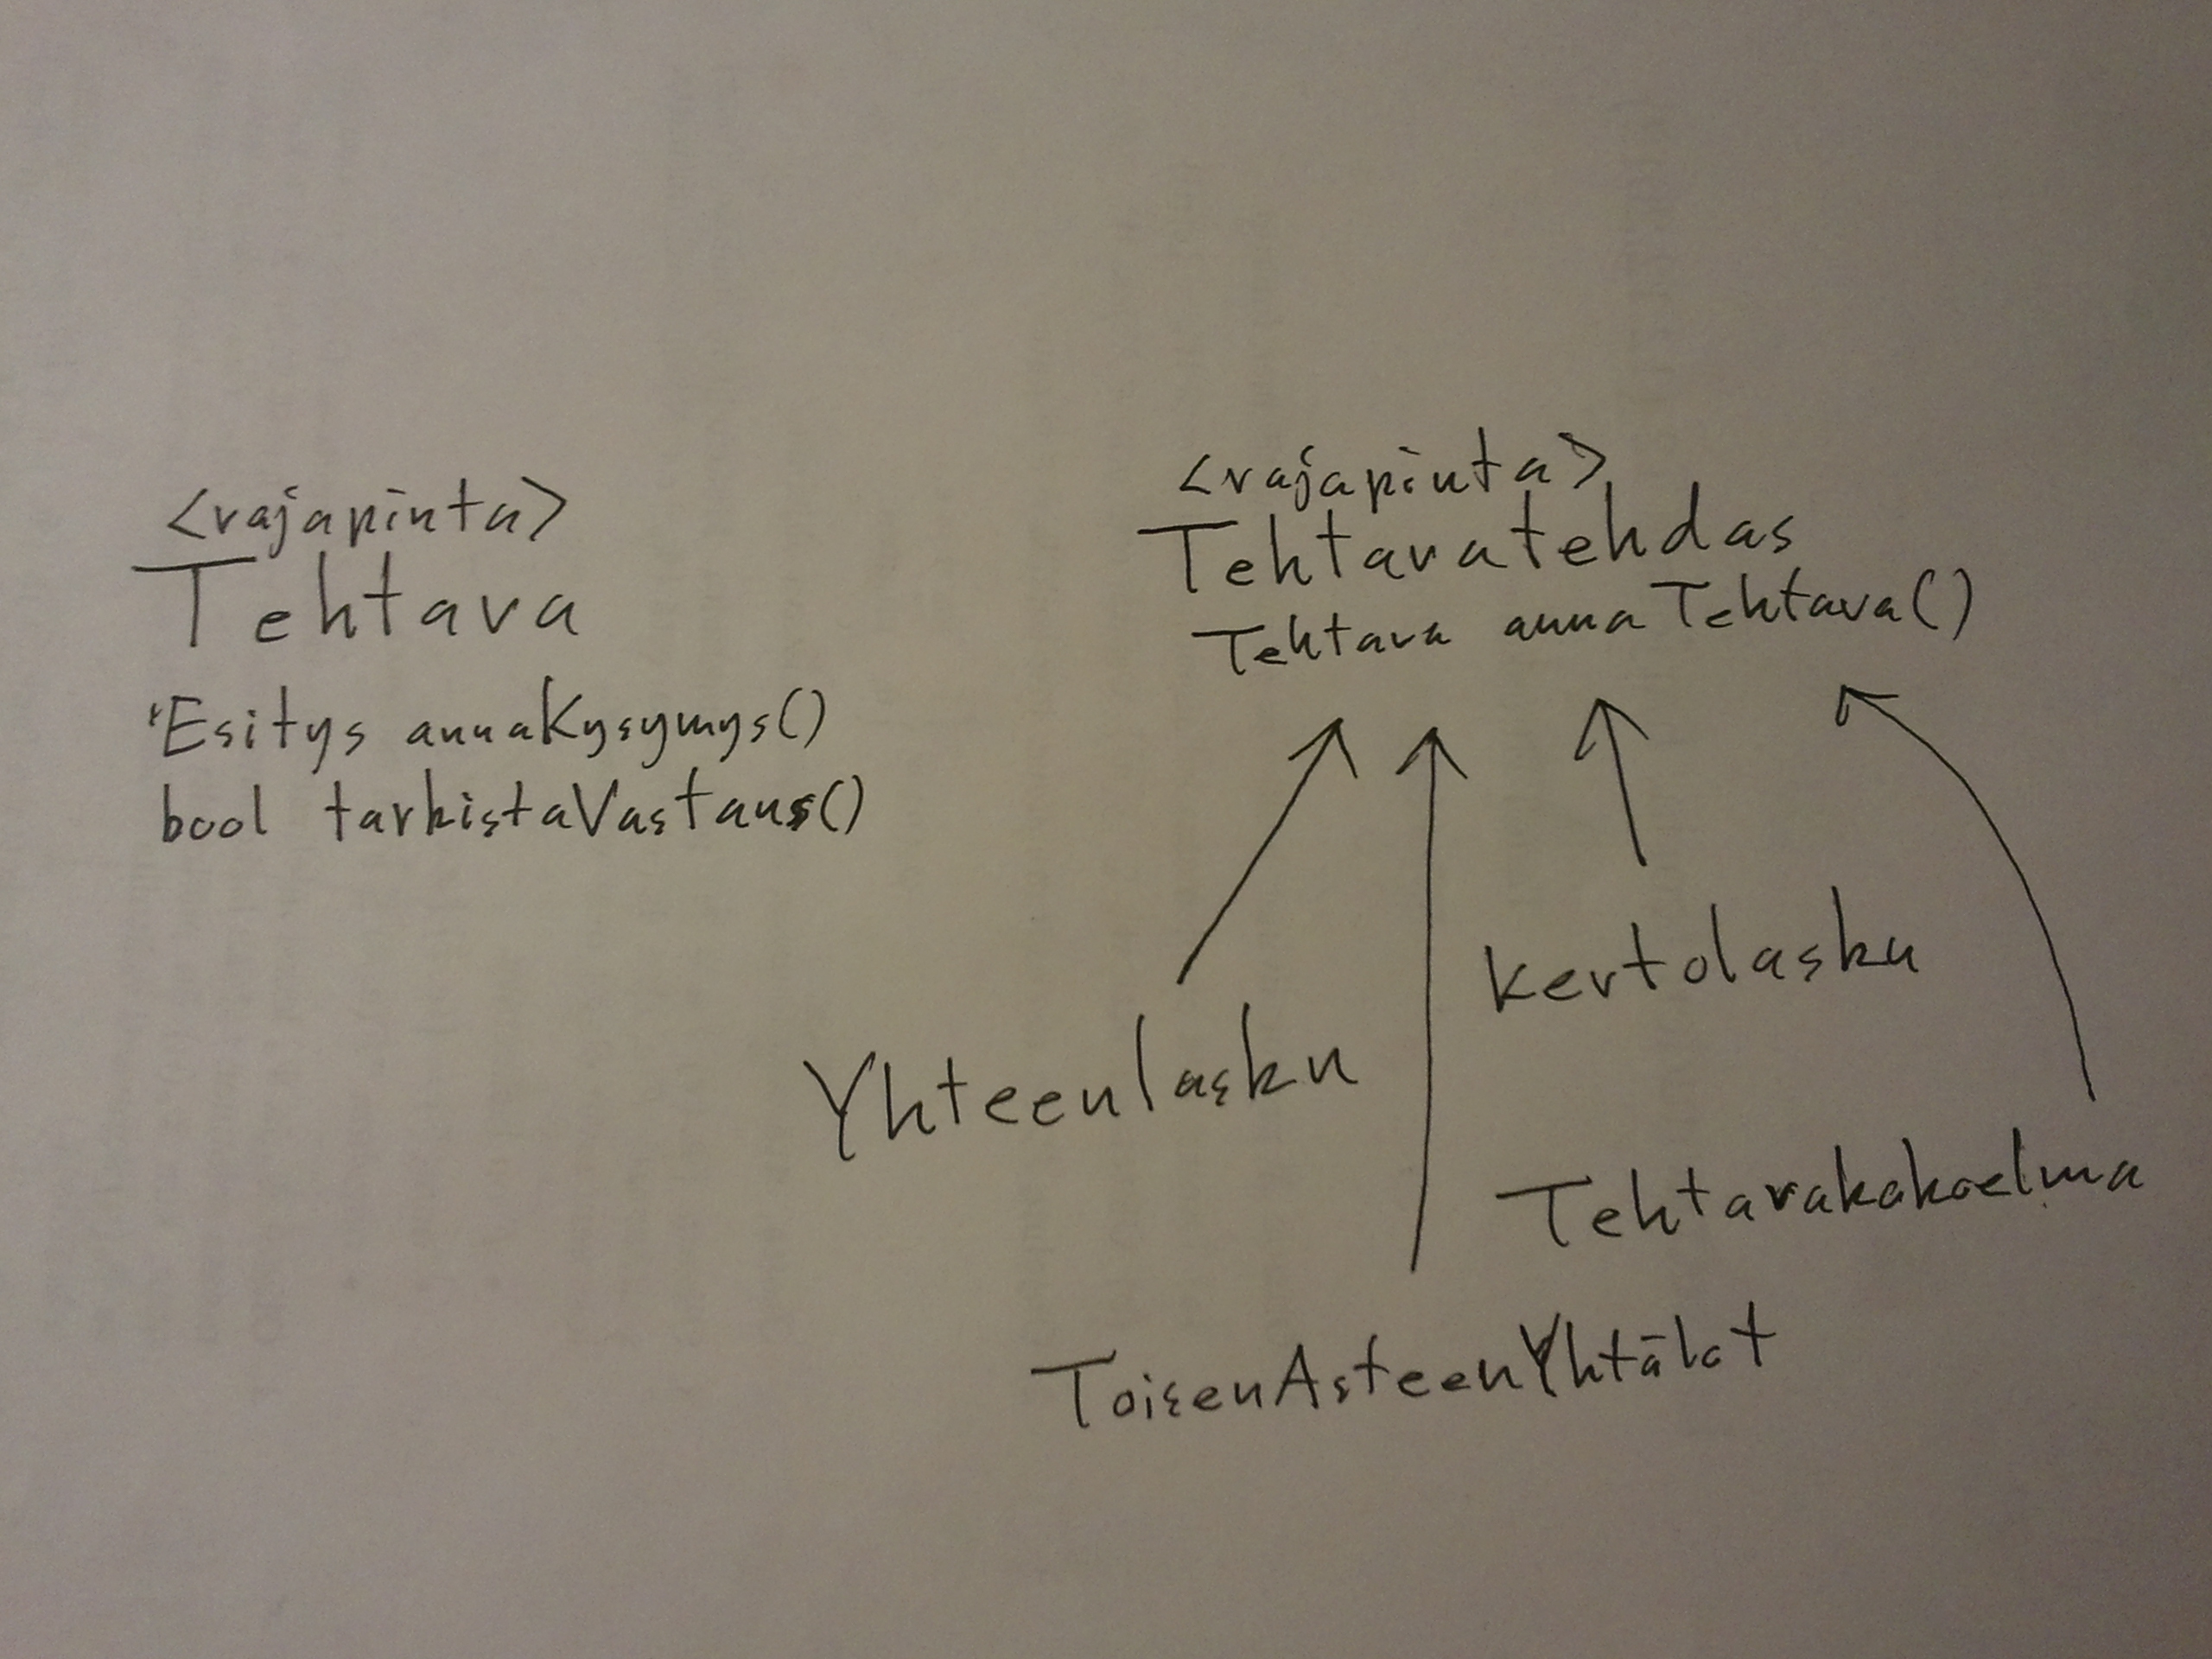 <rajapinta>
Tehtava
Esitys annaKysymys()
bool tarkistaVastaus()
<rajapinta>
Tehtavatehdas
Tehtava annaTehtava()
Kertolasku
Yhteenlasku
Tehtavakokoelma
ToisenAsteenYhtälöt